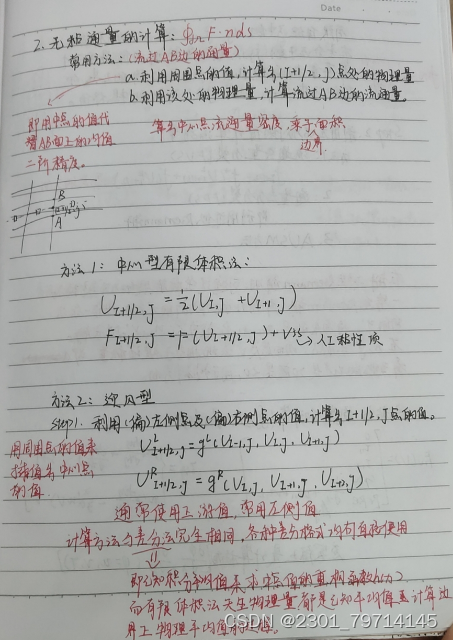 Date
2. 无粘通量的计算: ∮∂Ω F·n ds
常用方法: (流过AB边的通量)
a. 利用周围点的值,计算出(I+1/2, J)点处的物理量
b. 利用该处的物理量,计算流过AB边的流通量
即用中点的值代
替AB面上的均值
二阶精度。
算出中点流通量密度 乘于面积
边界
B
A
方法1: 中心型有限体积法:
U_{I+1/2,J} = 1/2(U_{I,J} + U_{I+1,J})
F_{I+1/2,J} = F(U_{I+1/2,J}) + Vis → 人工粘性项
方法2: 迎风型
step1. 利用(偏)左侧点及(偏)右侧点的值,计算出I+1/2, J点的值。
用周围点的值来
求
的值.
U^L_{I+1/2,J} = g^L(U_{I-1,J}, U_{I,J}, U_{I+1,J})
U^R_{I+1/2,J} = g^R(U_{I,J}, U_{I+1,J}, U_{I+2,J})
通常使用上游值, 常用左侧值
计算方法与差分法完全相同, 各种差分格式均可直接使用
即已知积分均值来求
而有限体积法天生物理量都是已知平均值去计算边
界上物理平均值的过程。
CSDN @2301_79714145